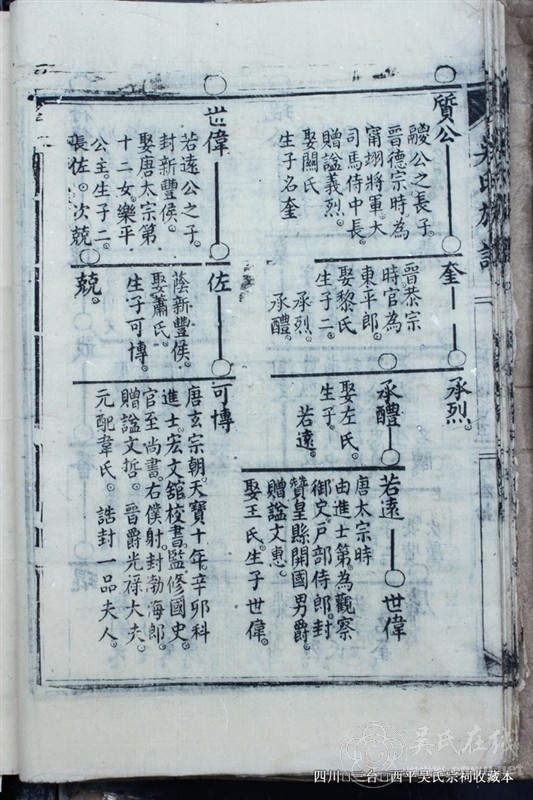 吳氏族譜
質公
公之長子。
晉德宗時為
甯翊將軍大
司馬侍中長
贈謚義烈。
娶關氏
生子名奎
奎
晉恭宗
時官為
東平郎。
娶黎氏
生子二。
承烈。
承醴。
承烈。
承醴
娶左氏。
生子。
若遠。
若遠
世偉
唐太宗時
由進士第。為觀察
御史。戶部侍郎。封
贊皇縣開國男爵。
贈謚文惠。
娶王氏。生子世偉。
世偉
若遠公之子。
封新豐侯。
娶唐太宗第
十二女。樂平
公主。生子二。
長佐。次兢。
佐
蔭新豐侯。
娶蕭氏。
生子可博。
兢。
可博
唐玄宗朝。天寶十年。辛卯科
進士。宏文舘校書。監修國史。
官至尚書。右僕射。封渤海郎。
贈謚文哲。晉爵光祿大夫。
元配韋氏。誥封一品夫人。
吴氏在线
四川□三台□西平吴氏宗祠收藏本